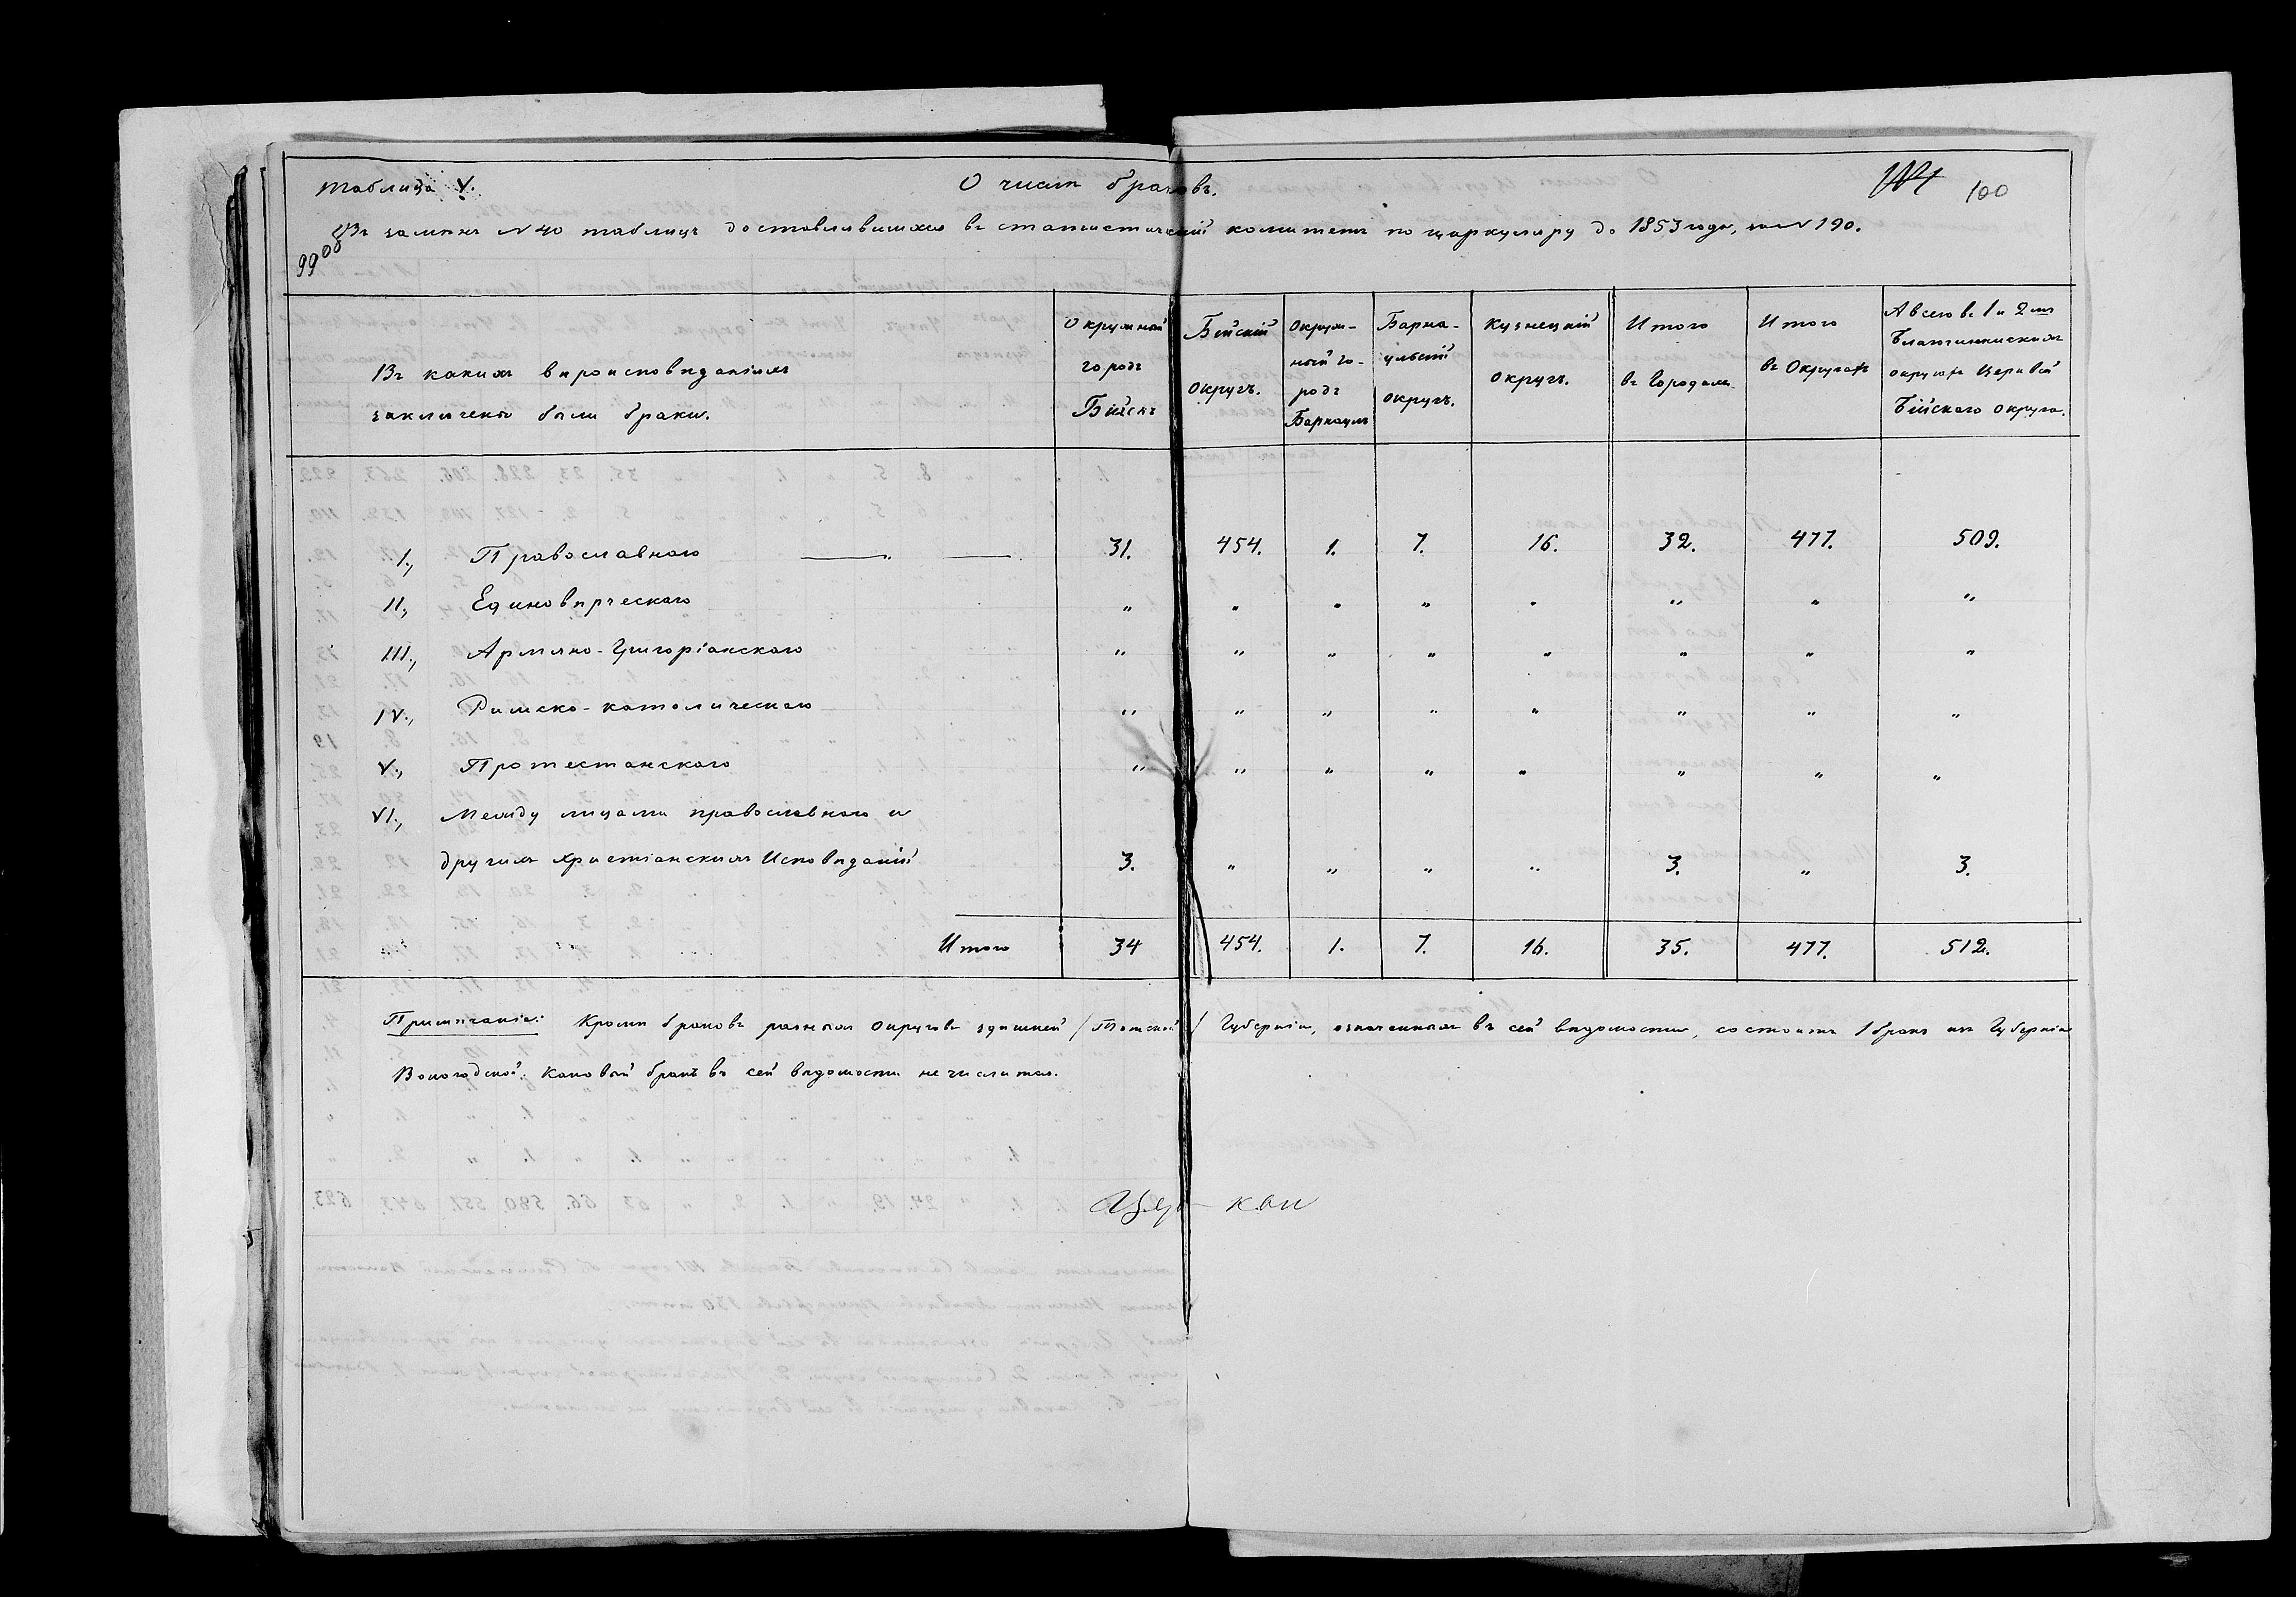 Таблица V. О числѣ браковъ. 100
99об
Въ замѣнъ № 40 таблицъ доставлявшихся въ статистическій комитетъ по циркуляру до 1853 года, за № 190.
Въ какихъ вѣроисповѣданіяхъ заключены были браки. | Окружный городъ Бійскъ | Бійскій округъ. | Окружный городъ Барнаулъ | Барнаульскій округъ. | Кузнецкій округъ. | Итого въ Городахъ | Итого въ Округахъ | А всего въ 1 и 2 мъ Благочинническихъ округахъ Церквей Бійскаго округа.
I., Православнаго 31. 454. 1. 7. 16. 32. 477. 509.
II., Единовѣрческаго „ „ „ „ „ „ „ „
III., Армяно-Григоріанскаго „ „ „ „ „ „ „ „
IV., Римско-католическаго „ „ „ „ „ „ „ „
V., Протестанскаго „ „ „ „ „ „ „ „
VI., Между лицами православнаго и
другихъ христіанскихъ Исповѣданій 3. „ „ „ „ 3. „ 3.
Итого 34 454. 1. 7. 16. 35. 477. 512.
Примѣчаніе: Кромѣ браковъ разныхъ округовъ здѣшней /Томской/ Губерніи, означенныхъ въ сей вѣдомости, состоитъ 1 бракъ изъ Губерніи
Вологодской; каковый бракъ въ сей вѣдомости не числится.
Цер- кви